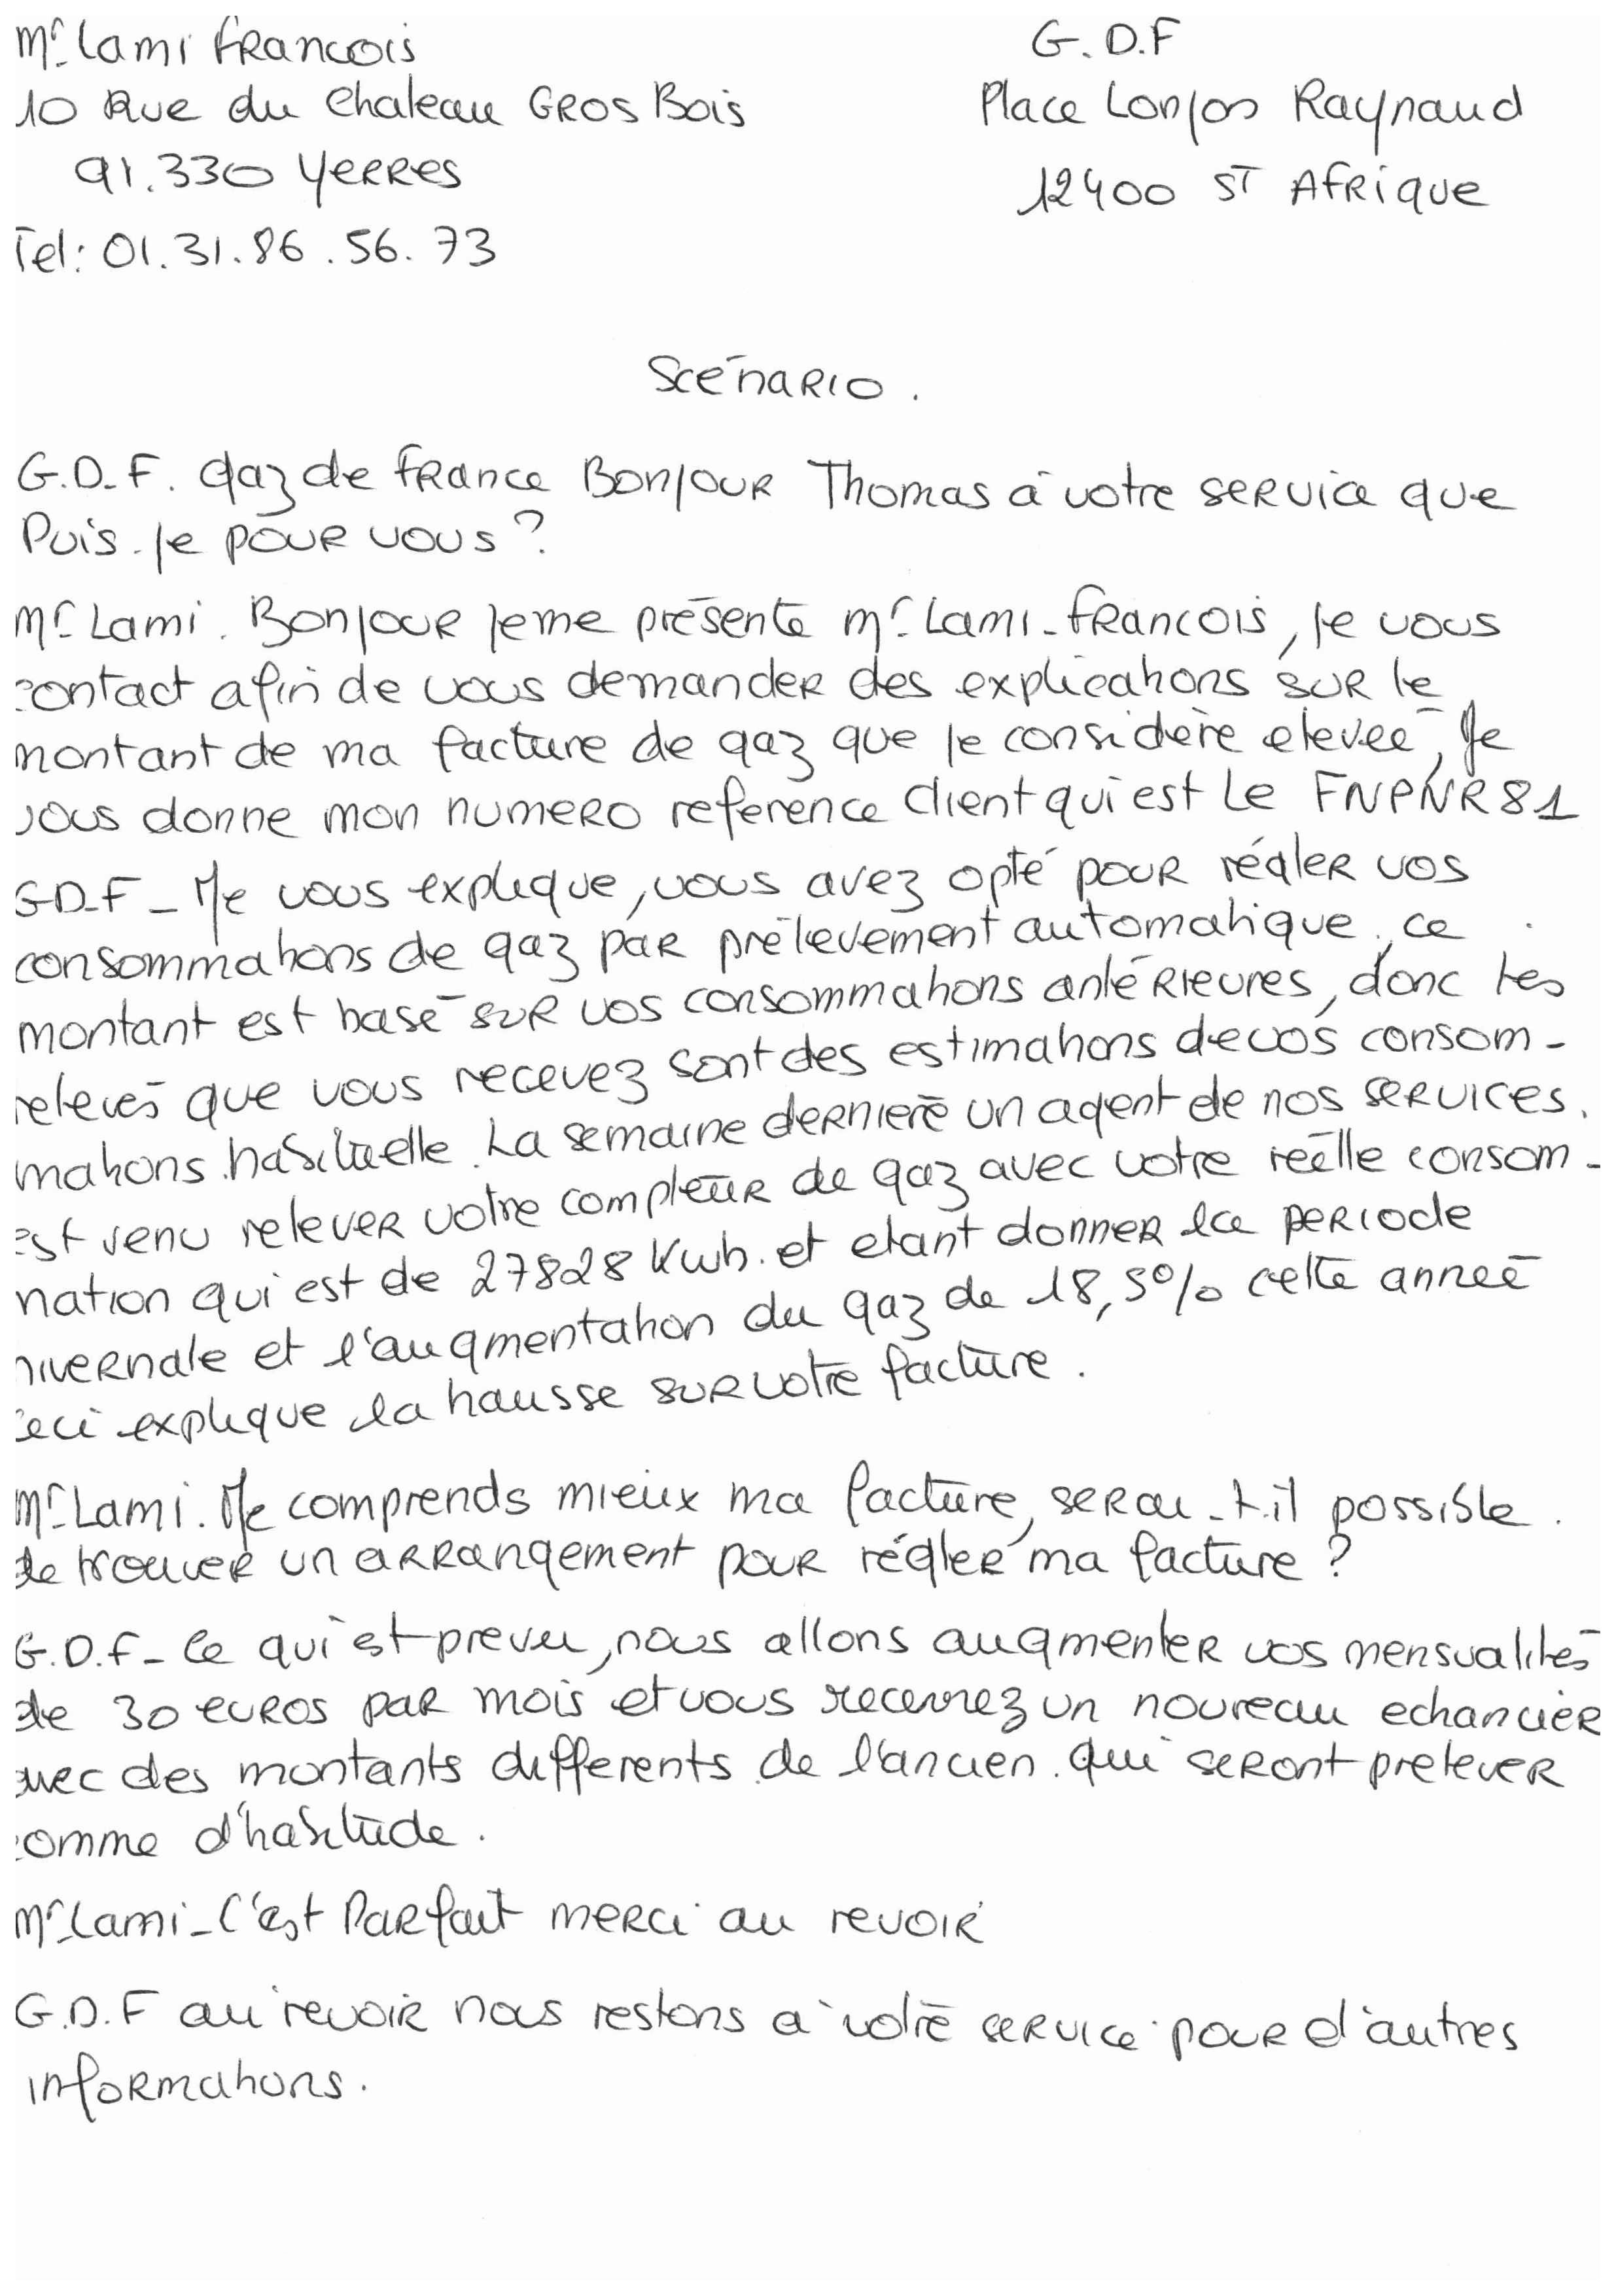 Mr Lami Francois
10 Rue du Chateau GROS Bois
91.330 YERRES
Tel: 01.31.86.56.73
G.D.F
Place Lonjon Raynaud
12400 ST AFRIQUE
Scénario.
G.D.F. gaz de France Bonjour Thomas à votre service que
Puis-je pour vous ?
Mr Lami. Bonjour je me présente Mr Lami-Francois, je vous
contact afin de vous demander des explications sur le
montant de ma facture de gaz que je considère elevée, Je
vous donne mon numero reference client qui est Le FNPNR81
G-D-F - Je vous explique, vous avez opté pour régler vos
consommations de gaz par prélevement automatique, ce
montant est basé sur vos consommations antérieures, donc les
relevés que vous recevez sont des estimations de vos consom-
mations habituelle. La semaine derniere un agent de nos services.
est venu relever votre compteur de gaz avec votre réelle consom-
mation qui est de 27828 Kwh. et etant donner la periode
hivernale et l'augmentation du gaz de 18,5% cette année
Ceci explique la hausse sur votre facture.
Mr Lami. Je comprends mieux ma facture, serai-t-il possible.
de trouver un arrangement pour régler ma facture ?
G.D.F - Ce qui est prevu, nous allons augmenter vos mensualités
de 30 euros par mois et vous recevrez un nouveau echancier
avec des montants differents de l'ancien. qui seront prelever
comme d'habitude.
Mr Lami - C'est Parfait merci au revoir
G.D.F au revoir nous restons à votre service pour d'autres
informations.